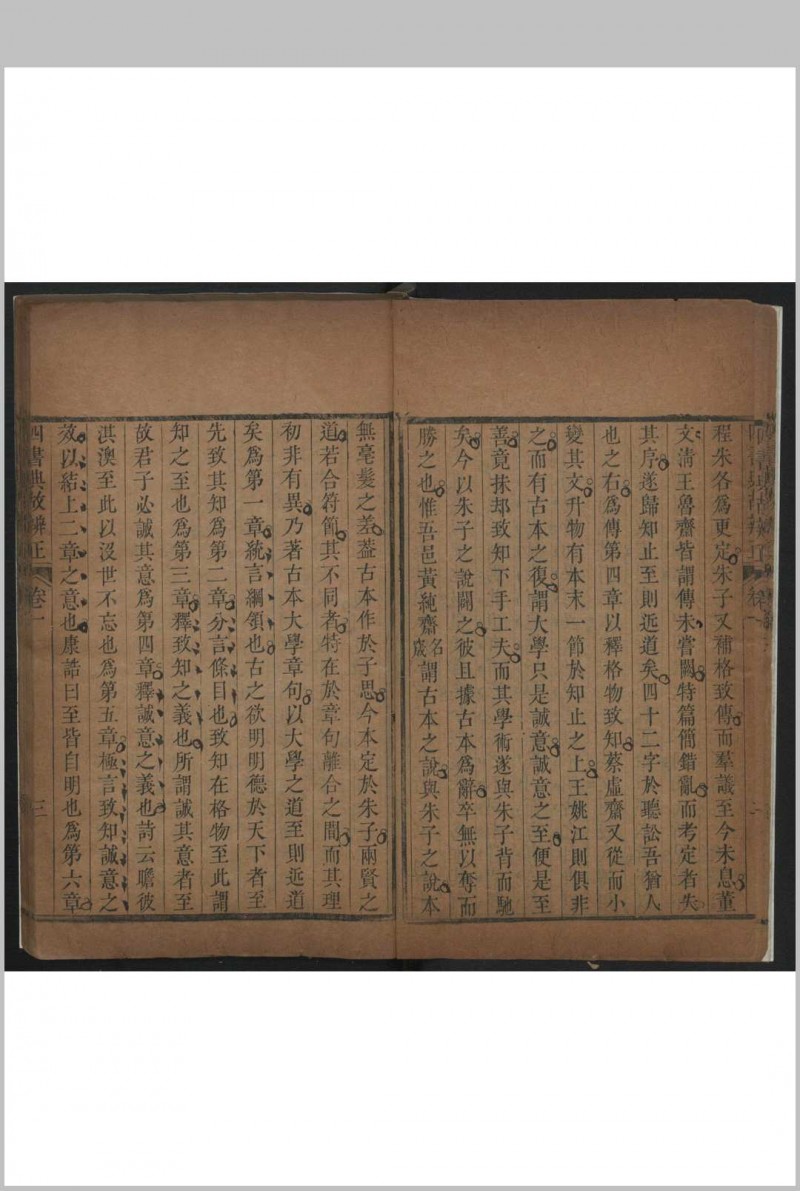 程朱各爲更定朱子又補格致傳而羣議至今未息董
文清王魯齋皆謂傳未嘗闕特篇簡錯亂而考定者失
其序遂歸知止至則近道矣四十二字於聽訟吾猶人
也之右爲傳第四章以釋格物致知蔡虛齋又從而小
變其文升物有本末一節於知止之上王姚江則俱非
之而有古本之復謂大學只是誠意誠意之至便是至
善竟抹却致知下手工夫而其學術遂與朱子背而馳
矣今以朱子之說闢之彼且據古本爲辭卒無以奪而
勝之也惟吾邑黃純齋名宬謂古本之說與朱子之說本
無毫髮之差葢古本作於子思今本定於朱子兩賢之
道若合符節其不同者特在於章句離合之間而其理
初非有異乃著古本大學章句以大學之道至則近道
矣爲第一章統言綱領也古之欲明明德於天下者至
先致其知爲第二章分言條目也致知在格物至此謂
知之至也爲第三章釋致知之義也所謂誠其意者至
故君子必誠其意爲第四章釋誠意之義也詩云瞻彼
淇澳至此以沒世不忘也爲第五章極言致知誠意之
效以結上二章之意也康誥曰至皆自明也爲第六章
四書典故辨正 卷一 三